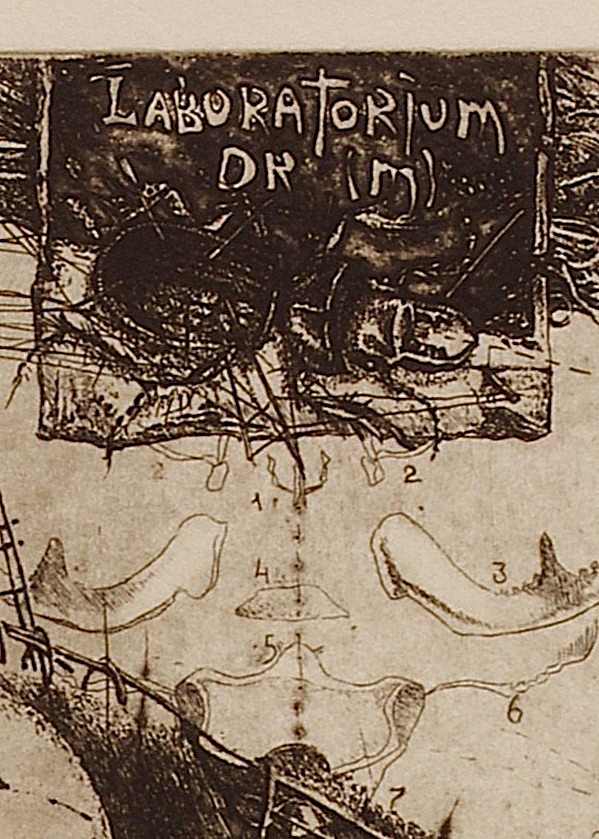 LABORATORIUM
DR (M)
2
1
2
3
4
5
6
7